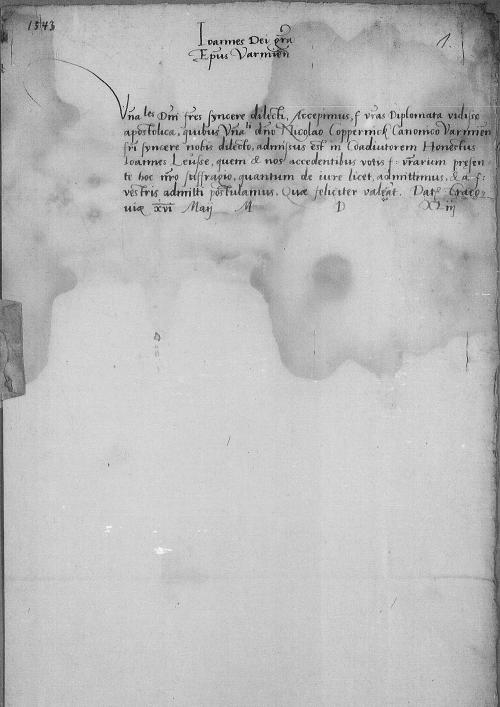 1543
1.
Ioannes Dei gr̃a
Ep̃us Varmieñ
Vña^les Dñi fres syncere dilecti, Accepimus, f vr̃as Diplomata vidisse
apostolica, quibus Vña^li dño Nicolao Coppernick Canonico Varmieñ
fr̃i syncere nobis dilecto, admissus est in Coadiutorem Honestus
Ioannes Leusse, quem & nos accedentibus votis f: vr̃arum præsen
te hoc nr̃o suffragio, quantum de iure licet, admittimus, & a f:
vestris admitti postulamus. Quæ feliciter valeãt. Dat̃ Craco-
uiæ xvi Maij M D XLiij